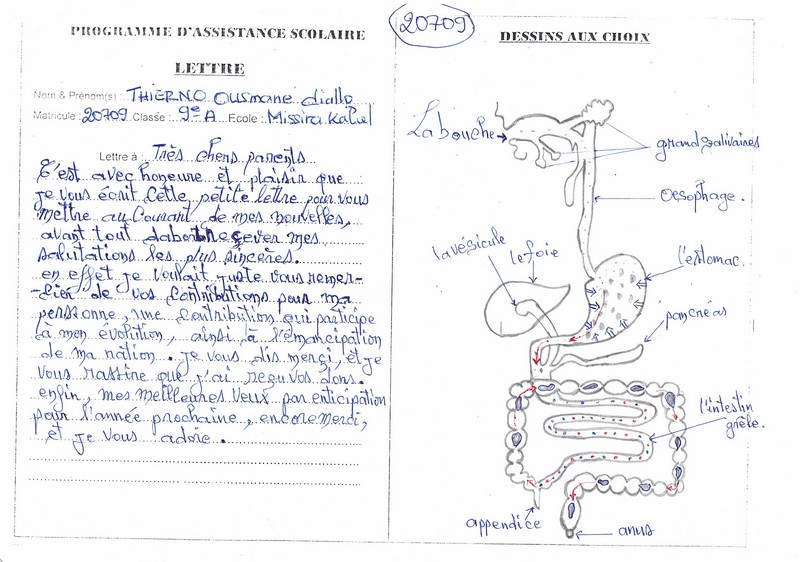 PROGRAMME D'ASSISTANCE SCOLAIRE
LETTRE
Nom & Prénom(s) : THIERNO Ousmane diallo
Matricule : 20709 Classe : 9e A Ecole : Missira Kahel
Lettre à : Très chers parents
C'est avec honeure et plaisir que
je vous écrit cette petite lettre pour vous
mettre au courant de mes nouvelles,
avant tout dabort recever mes
salutations les plus sincères.
en effet je voulait juste vous remer-
-cier de vos contributions pour ma
personne, une contribution qui participe
à mon évolution, ainsi à l'émancipation
de ma nation. je vous dis merçi, et je
vous rassure que j'ai reçu vos dons.
enfin, mes meilleures veux par enticipation
pour l'année prochaine, encore merçi,
et je vous adore.
20709
DESSINS AUX CHOIX
La bouche
grand salivaires
Oesophage.
la vésicule
le foie
l'estomac.
pancréas
l'intestin
grêle.
appendice
anus